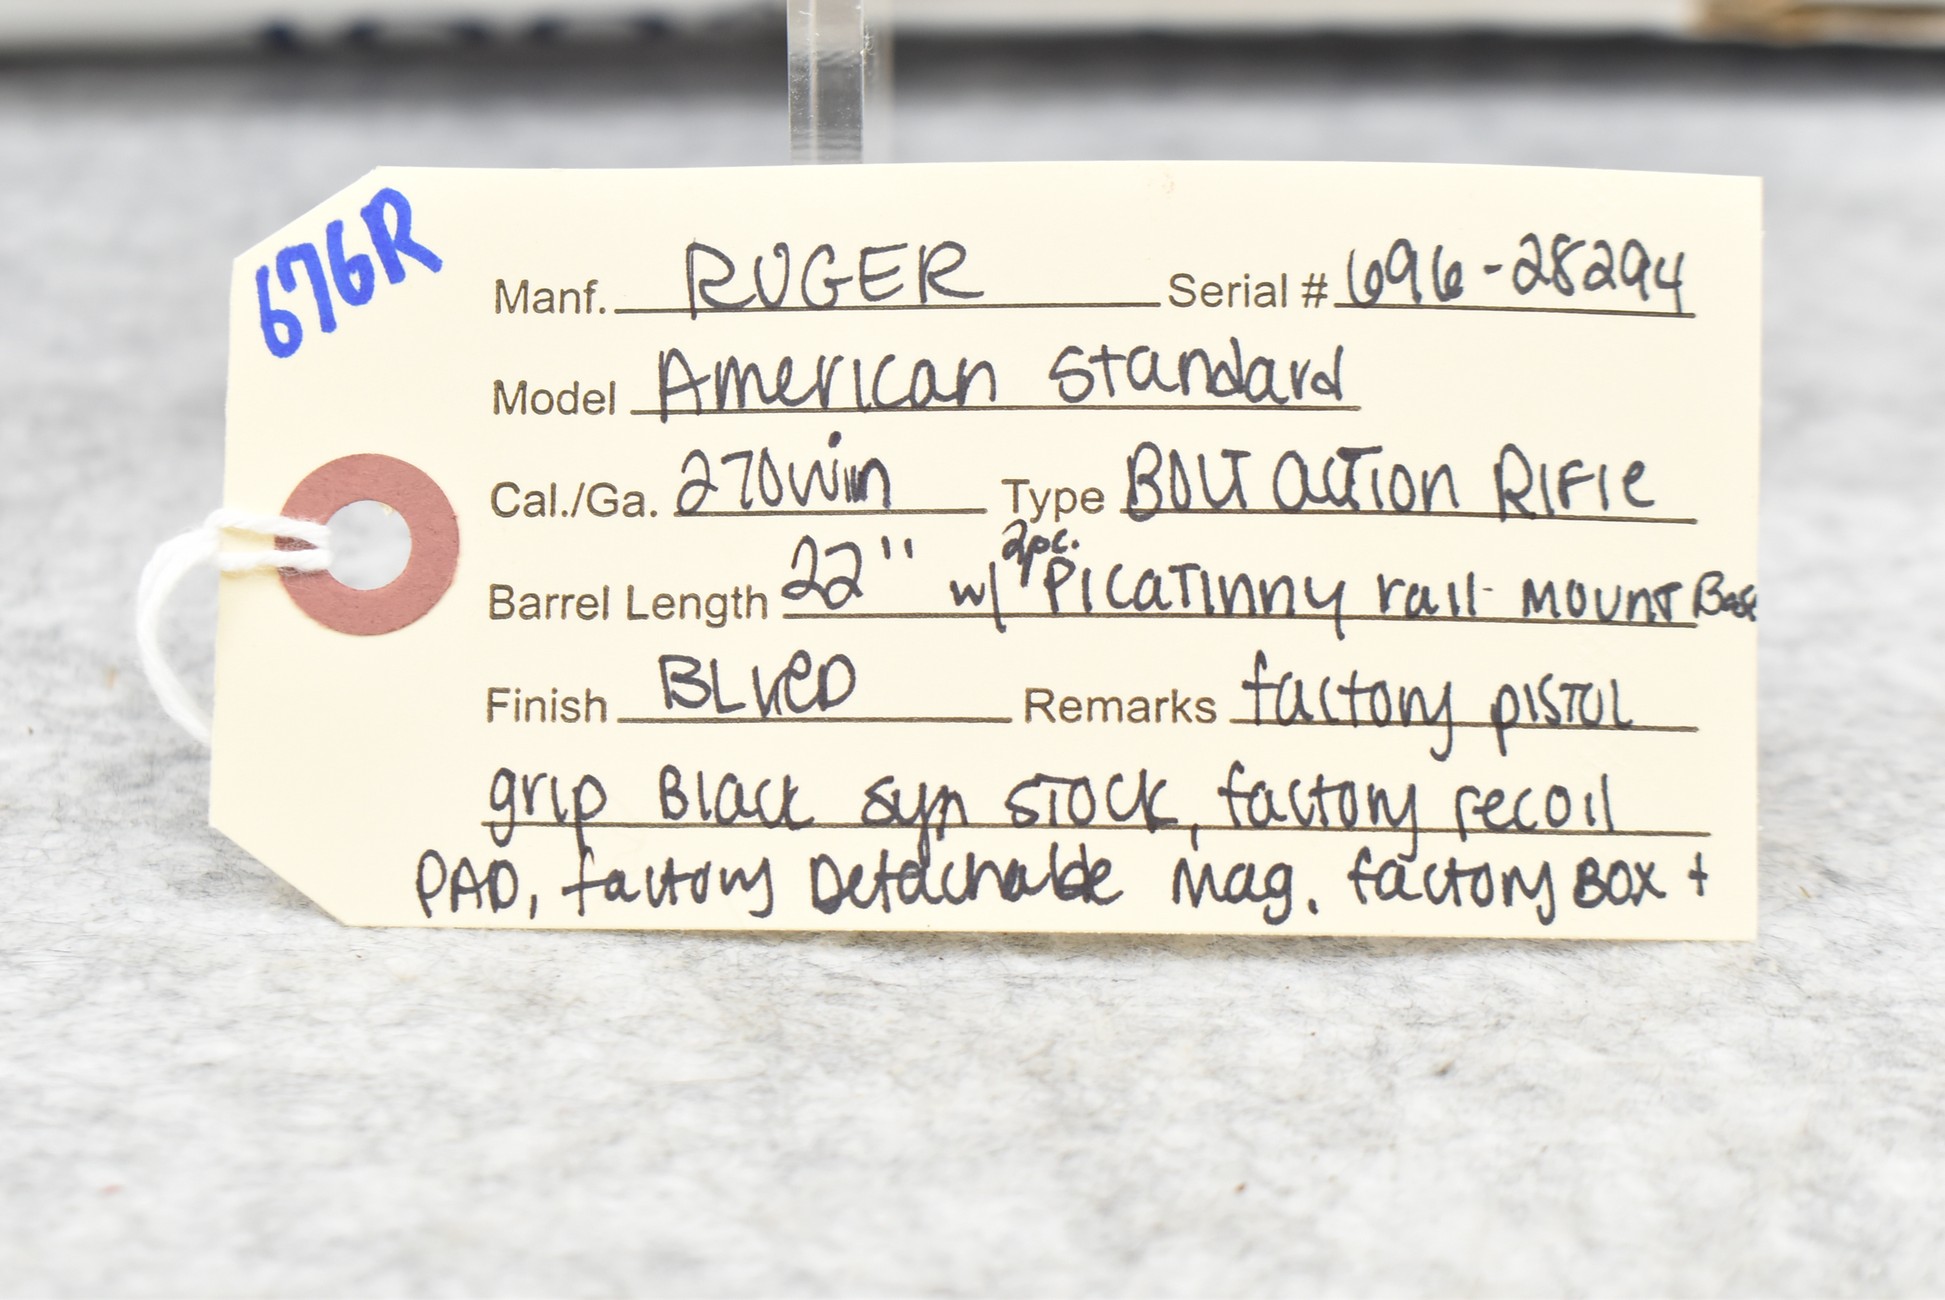 676R
Manf. RUGER Serial # 696-28294
Model American Standard
Cal./Ga. 270 Win Type BOLT ACTION RIFle
Barrel Length 22" w/ 2pc. PICATINNY rail MOUNT Base
Finish BLUeD Remarks factory PISTOL
grip Black syn STOCK, factory recoil
PAD, factory Detachable Mag. factory Box +